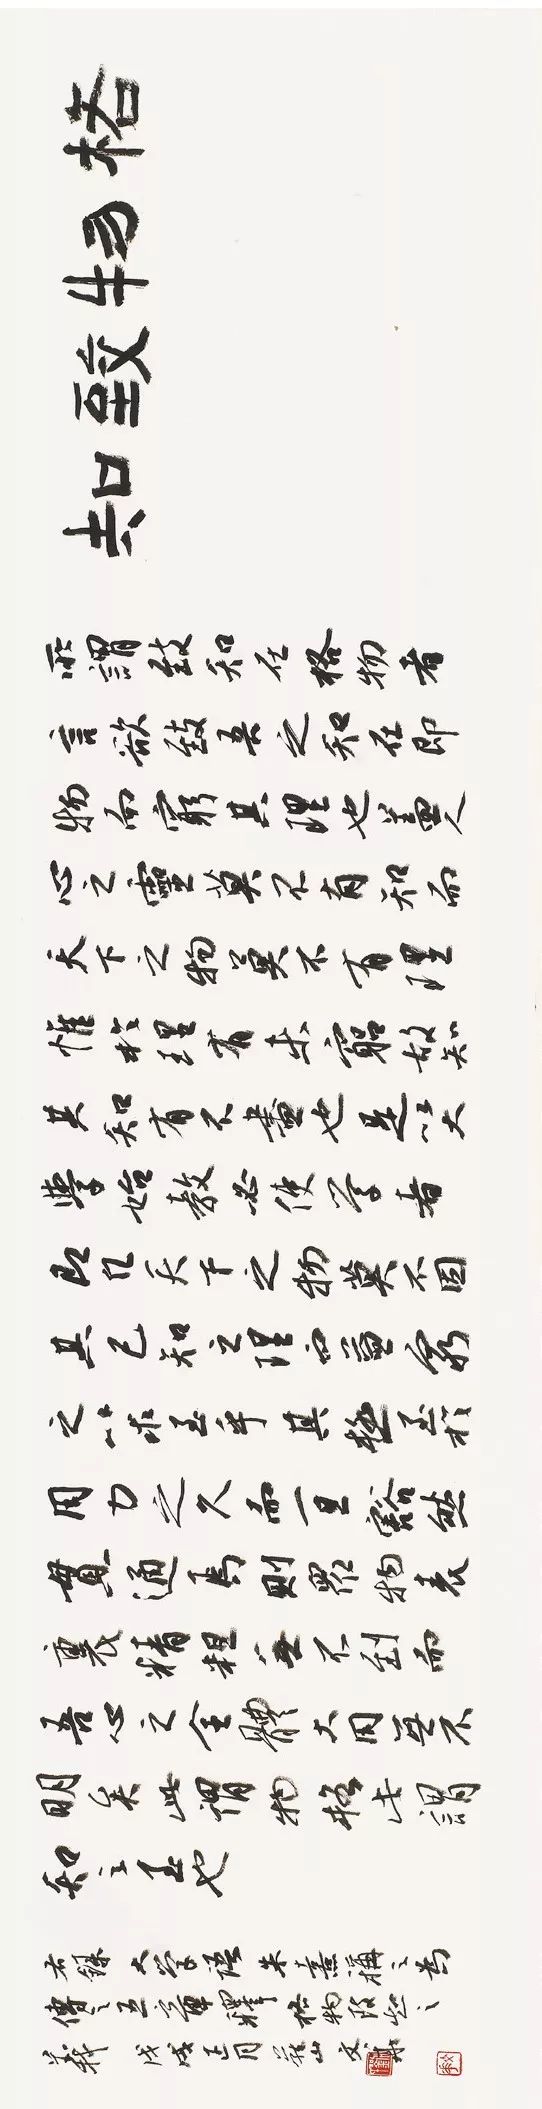 格物致知
所謂致知在格物者
言欲致吾之知在即
物而窮其理也蓋人
心之靈莫不有知而
天下之物莫不有理
惟於理有未窮故知
其知有不盡也是以大
學始教必使學者
即凡天下之物莫不因
其已知之理而益窮
之以求至乎其極至於
用力之久而一旦豁然
貫通焉則眾物表
裏精粗無不到而
吾心之全體大用無不
明矣此謂物格此謂
知之至也
右錄大學語朱熹稱之為
傳之五章釋格物致知之
義戊戌正月